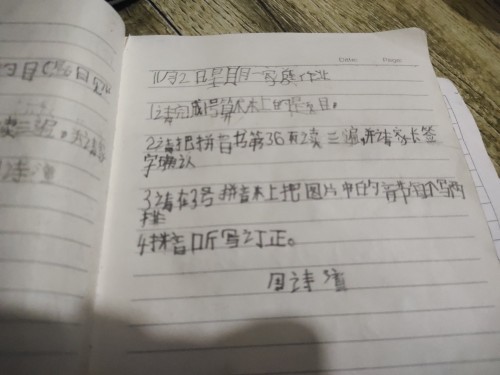 Date: Page:
11月2日星期一家庭作业
1请完成1号算术本上的题目。
2请把拼音书第36页读三遍,并请家长签
字确认
3请在3号拼音本上把图片中的音节组词写两
排
4拼音听写订正。
周诗
三遍,